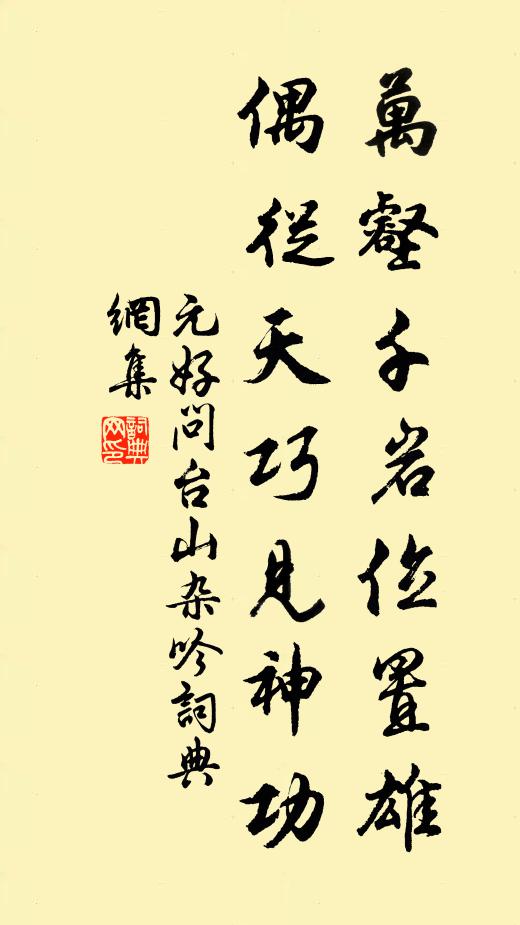 萬壑千岩位置雄
偶從天巧見神功
元好问台山杂吟詞典
網集
詞典網印